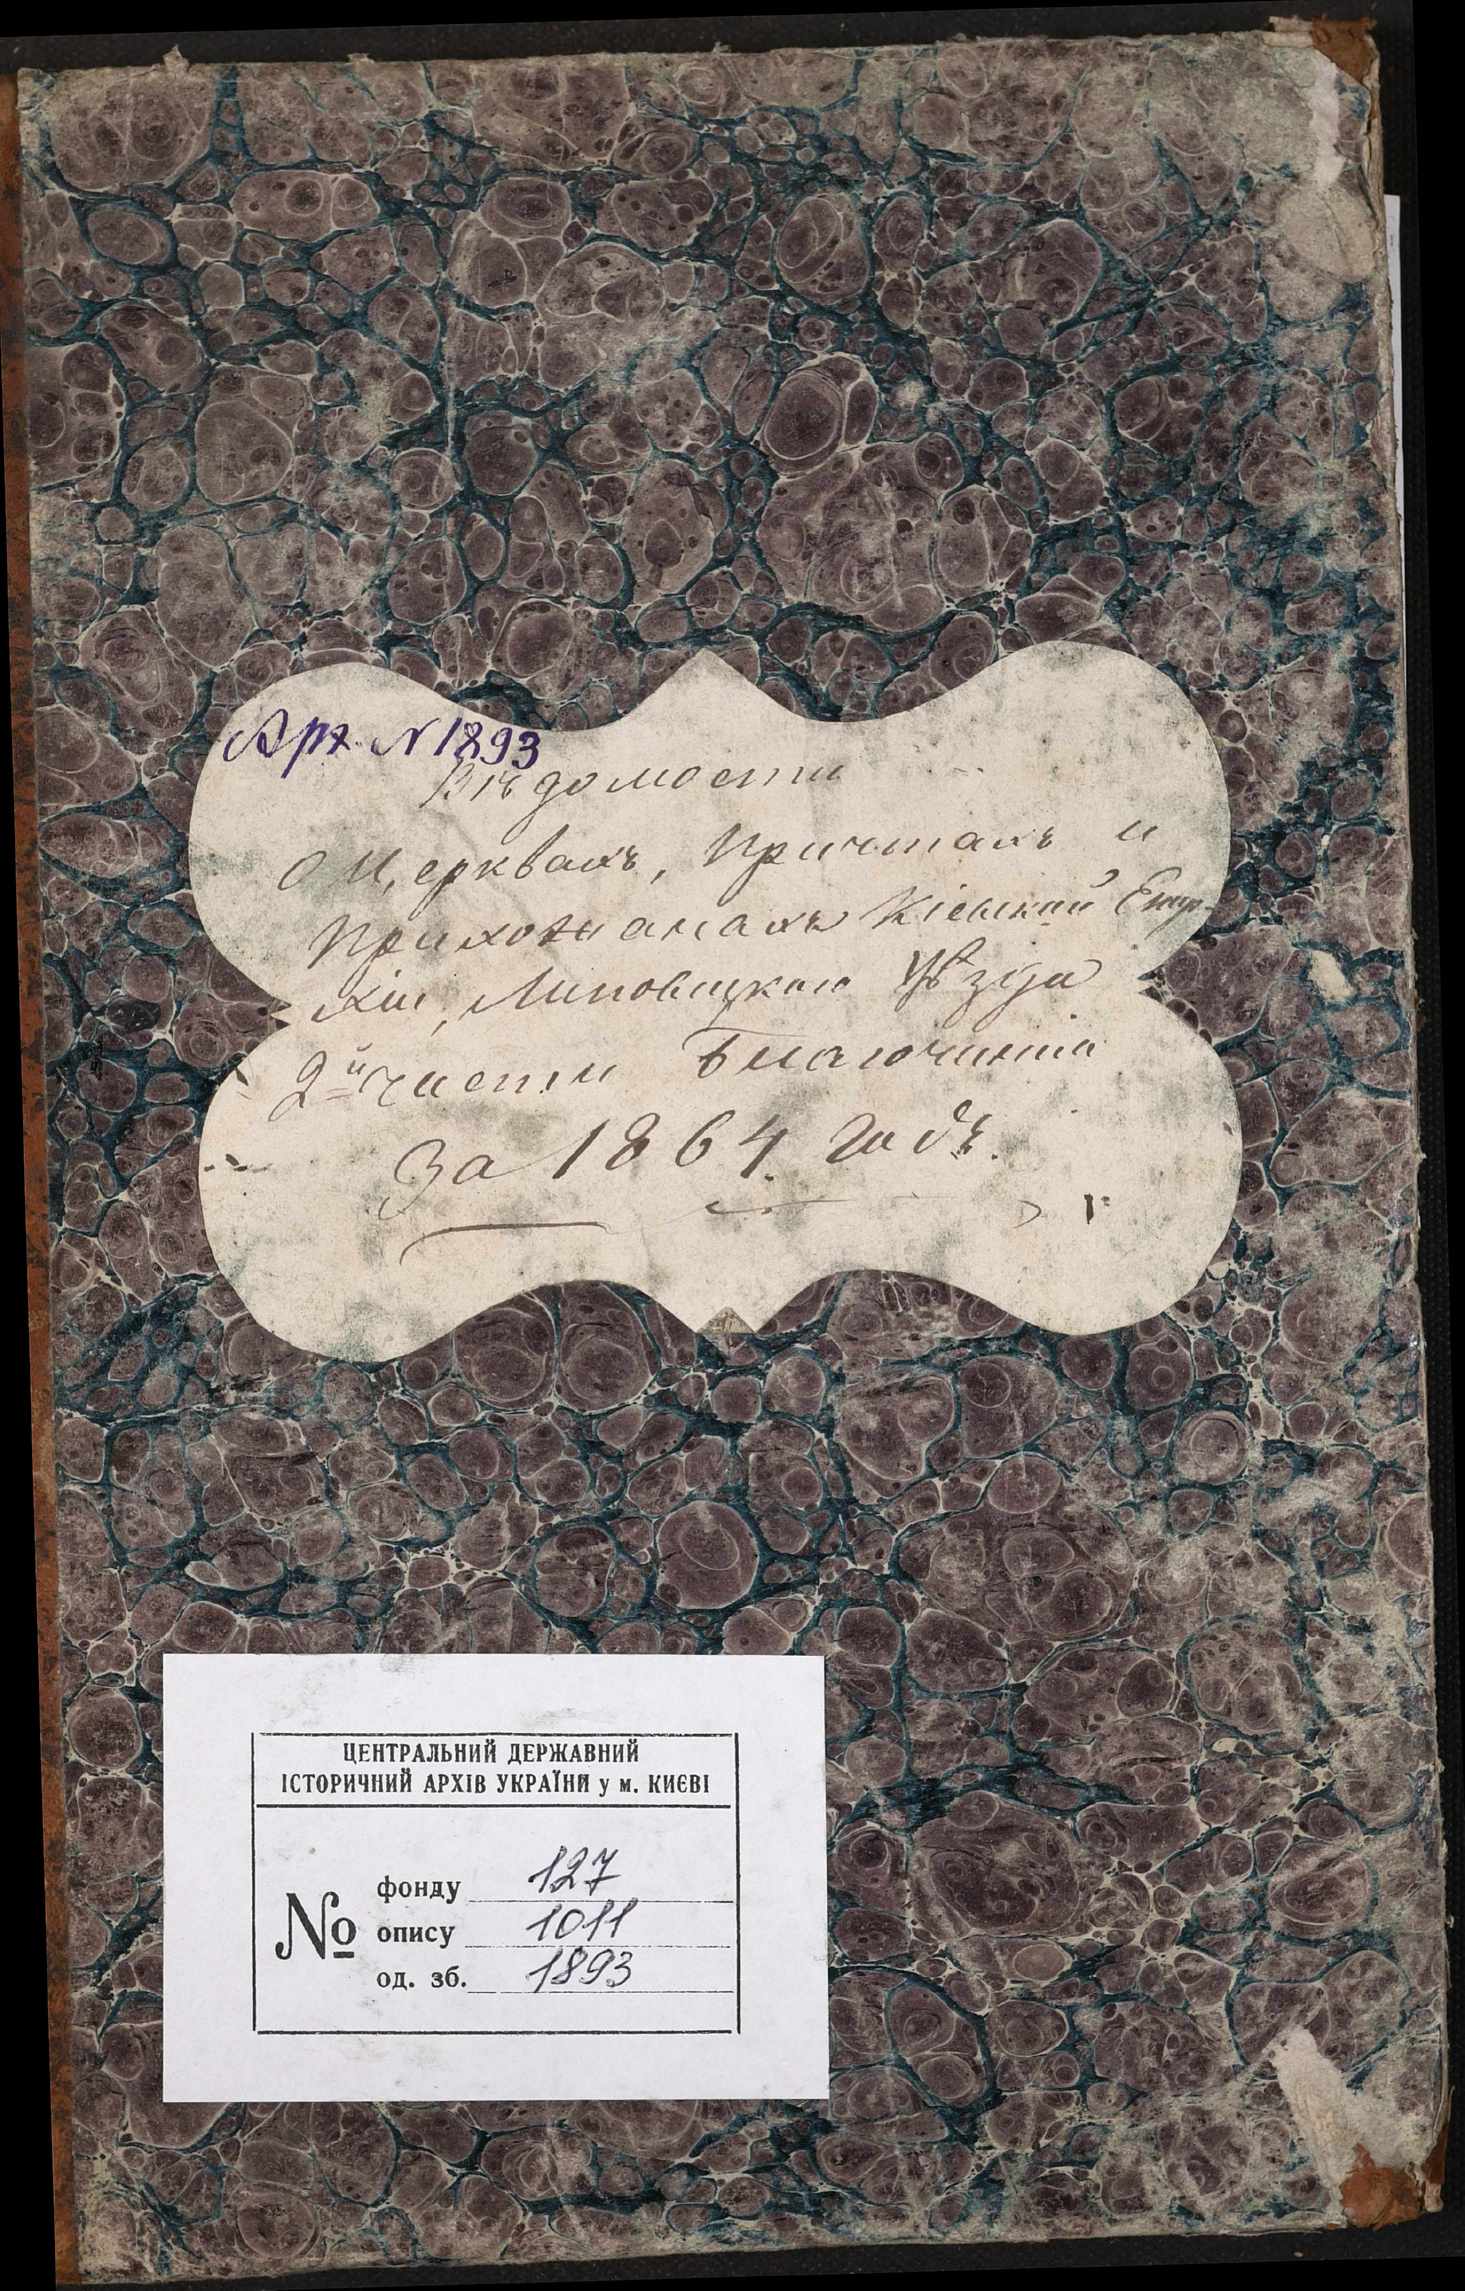 Арх. № 1893
Вѣдомости
о Церквахъ, Причтахъ и
Прихожанахъ Кіевской Епар-
хіи, Липовецкаго Уѣзда
2й части Благочинія
За 1864 годъ.
ЦЕНТРАЛЬНИЙ ДЕРЖАВНИЙ
ІСТОРИЧНИЙ АРХІВ УКРАЇНИ у м. КИЄВІ
№ фонду 127
опису 1011
од. зб. 1893